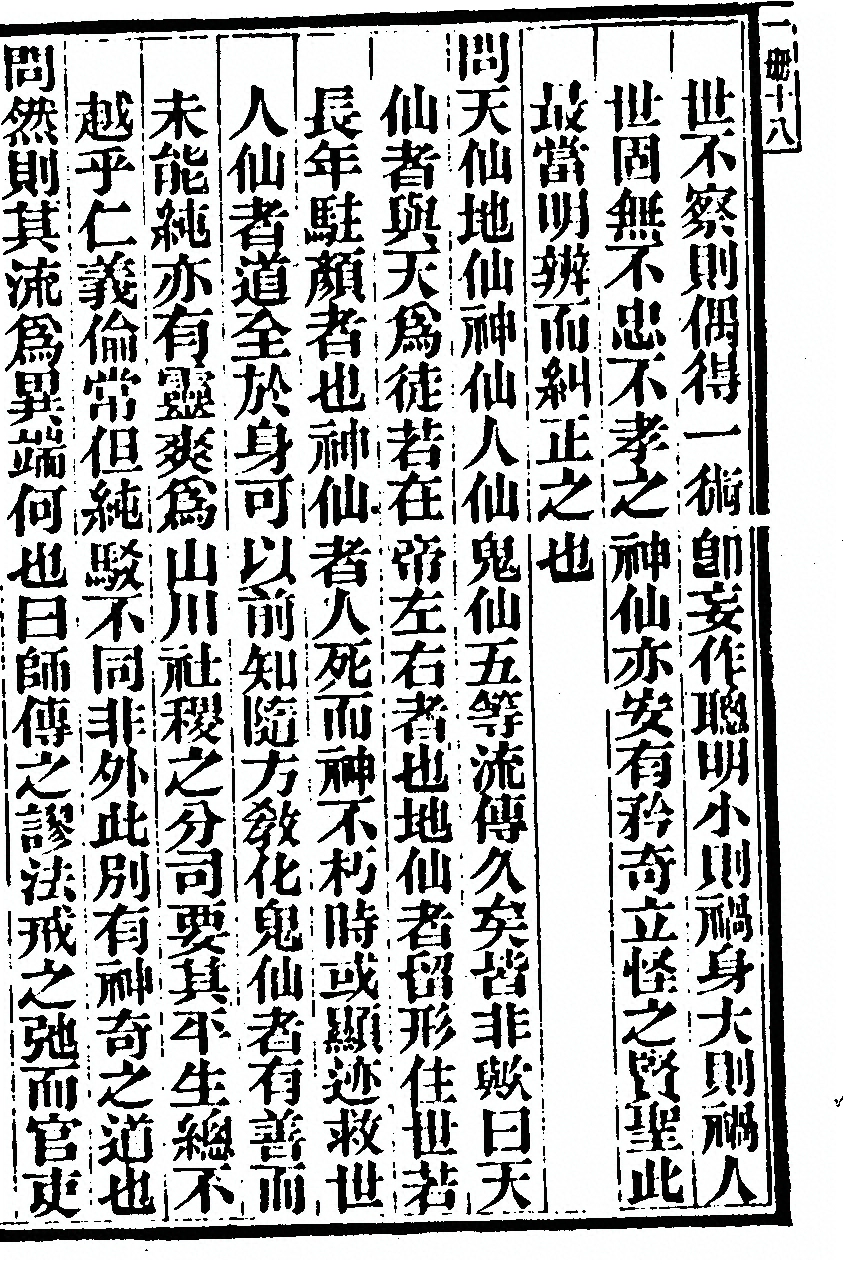 一冊十八
世不察則偶得一術卽妄作聰明小則禍身大則禍人
世固無不忠不孝之神仙亦安有矜奇立怪之賢聖此
最當明辨而糾正之也
問天仙地仙神仙人仙鬼仙五等流傳久矣皆非歟曰天
仙者與天爲徒若在帝左右者也地仙者留形住世若
長年駐顏者也神仙者人死而神不朽時或顯迹救世
人仙者道全於身可以前知隨方敎化鬼仙者有善而
未能純亦有靈爽爲山川社稷之分司要其平生總不
越乎仁義倫常但純駁不同非外此別有神奇之道也
問然則其流爲異端何也曰師傳之謬法戒之弛而官吏